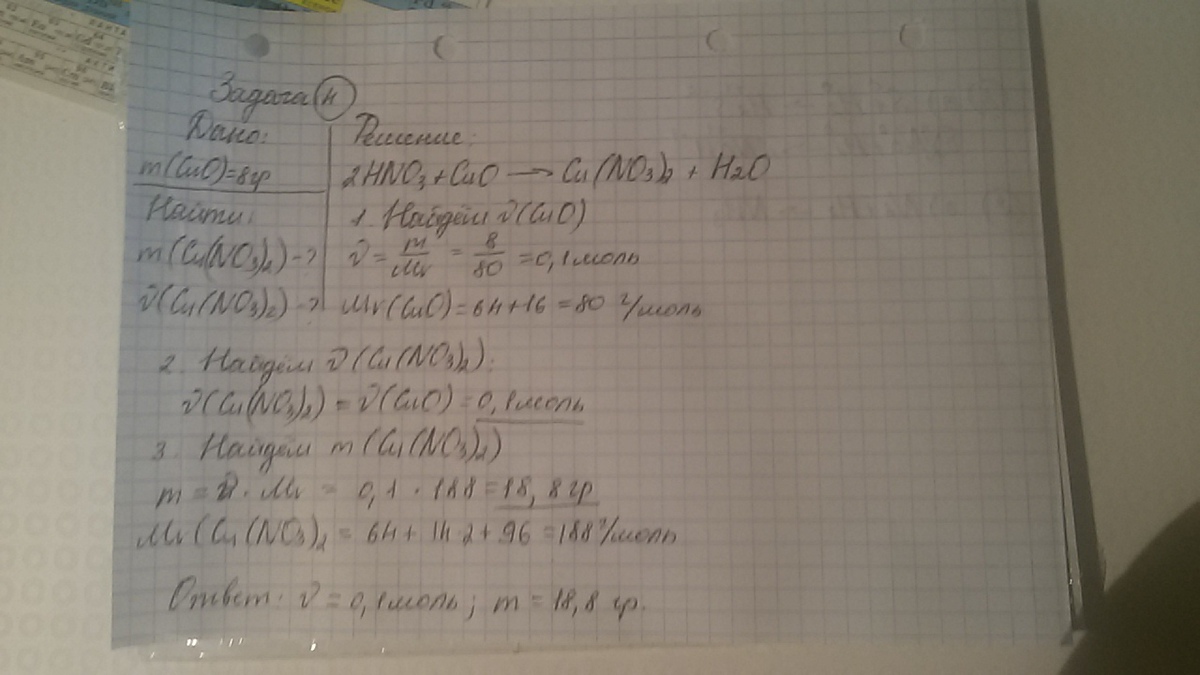 Задача 4
Дано:
m(CuO)=8гр
Найти:
m(Cu(NO3)2)-?
ν(Cu(NO3)2)-?
Решение:
2HNO3+CuO → Cu(NO3)2 + H2O
1. Найдём ν(CuO)
ν = m/Mr = 8/80 = 0,1моль
Mr(CuO)=64+16=80 г/моль
2. Найдём ν(Cu(NO3)2):
ν(Cu(NO3)2) = ν(CuO) = 0,1моль
3. Найдём m(Cu(NO3)2)
m = ν · Mr = 0,1 · 188 = 18,8гр
Mr(Cu(NO3)2 = 64+14·2+96=188 г/моль
Ответ: ν = 0,1моль; m = 18,8 гр.